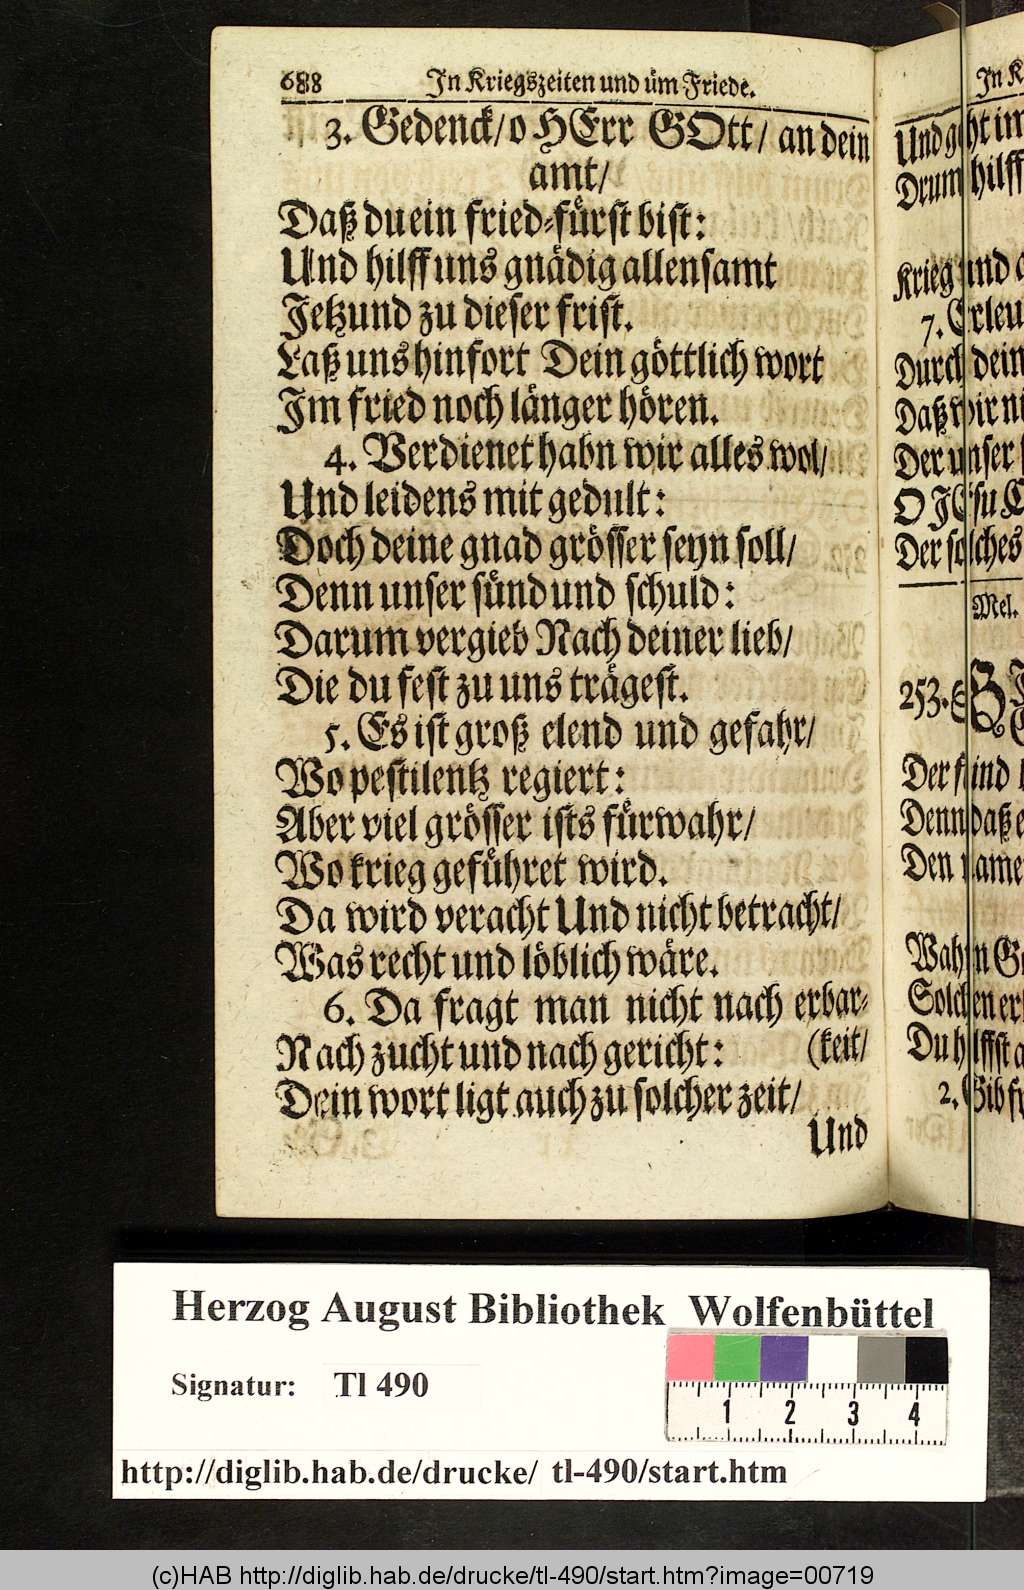 688 In Kriegszeiten und üm Friede.
3. Gedenck/ o HErr GOtt/ an dein
amt/
Daß du ein fried-fürst bist:
Und hilff uns gnädig allensamt
Jetzund zu dieser frist.
Laß uns hinfort Dein göttlich wort
Im fried noch länger hören.
4. Verdienet habn wir alles wol/
Und leidens mit gedult:
Doch deine gnad grösser seyn soll/
Denn unser sünd und schuld:
Darum vergieb Nach deiner lieb/
Die du fest zu uns trägest.
5. Es ist groß elend und gefahr/
Wo pestilentz regiert:
Aber viel grösser ists fürwahr/
Wo krieg geführet wird.
Da wird veracht Und nicht betracht/
Was recht und löblich wäre.
6. Da fragt man nicht nach erbar-
Nach zucht und nach gericht: (keit/
Dein wort ligt auch zu solcher zeit/
Und
In
Und geht im
Drum hilff
Krieg und
7. Erleu
Durch dein
Daß wir
Der unser
O JEsu
Der solches
Mel.
253.
Der feind
Denn daß
Den name
Wahn
Solchen
Du hilffst
2. Gib
Herzog August Bibliothek Wolfenbüttel
Signatur: Tl 490
1 2 3 4
http://diglib.hab.de/drucke/ tl-490/start.htm
(c)HAB http://diglib.hab.de/drucke/tl-490/start.htm?image=00719